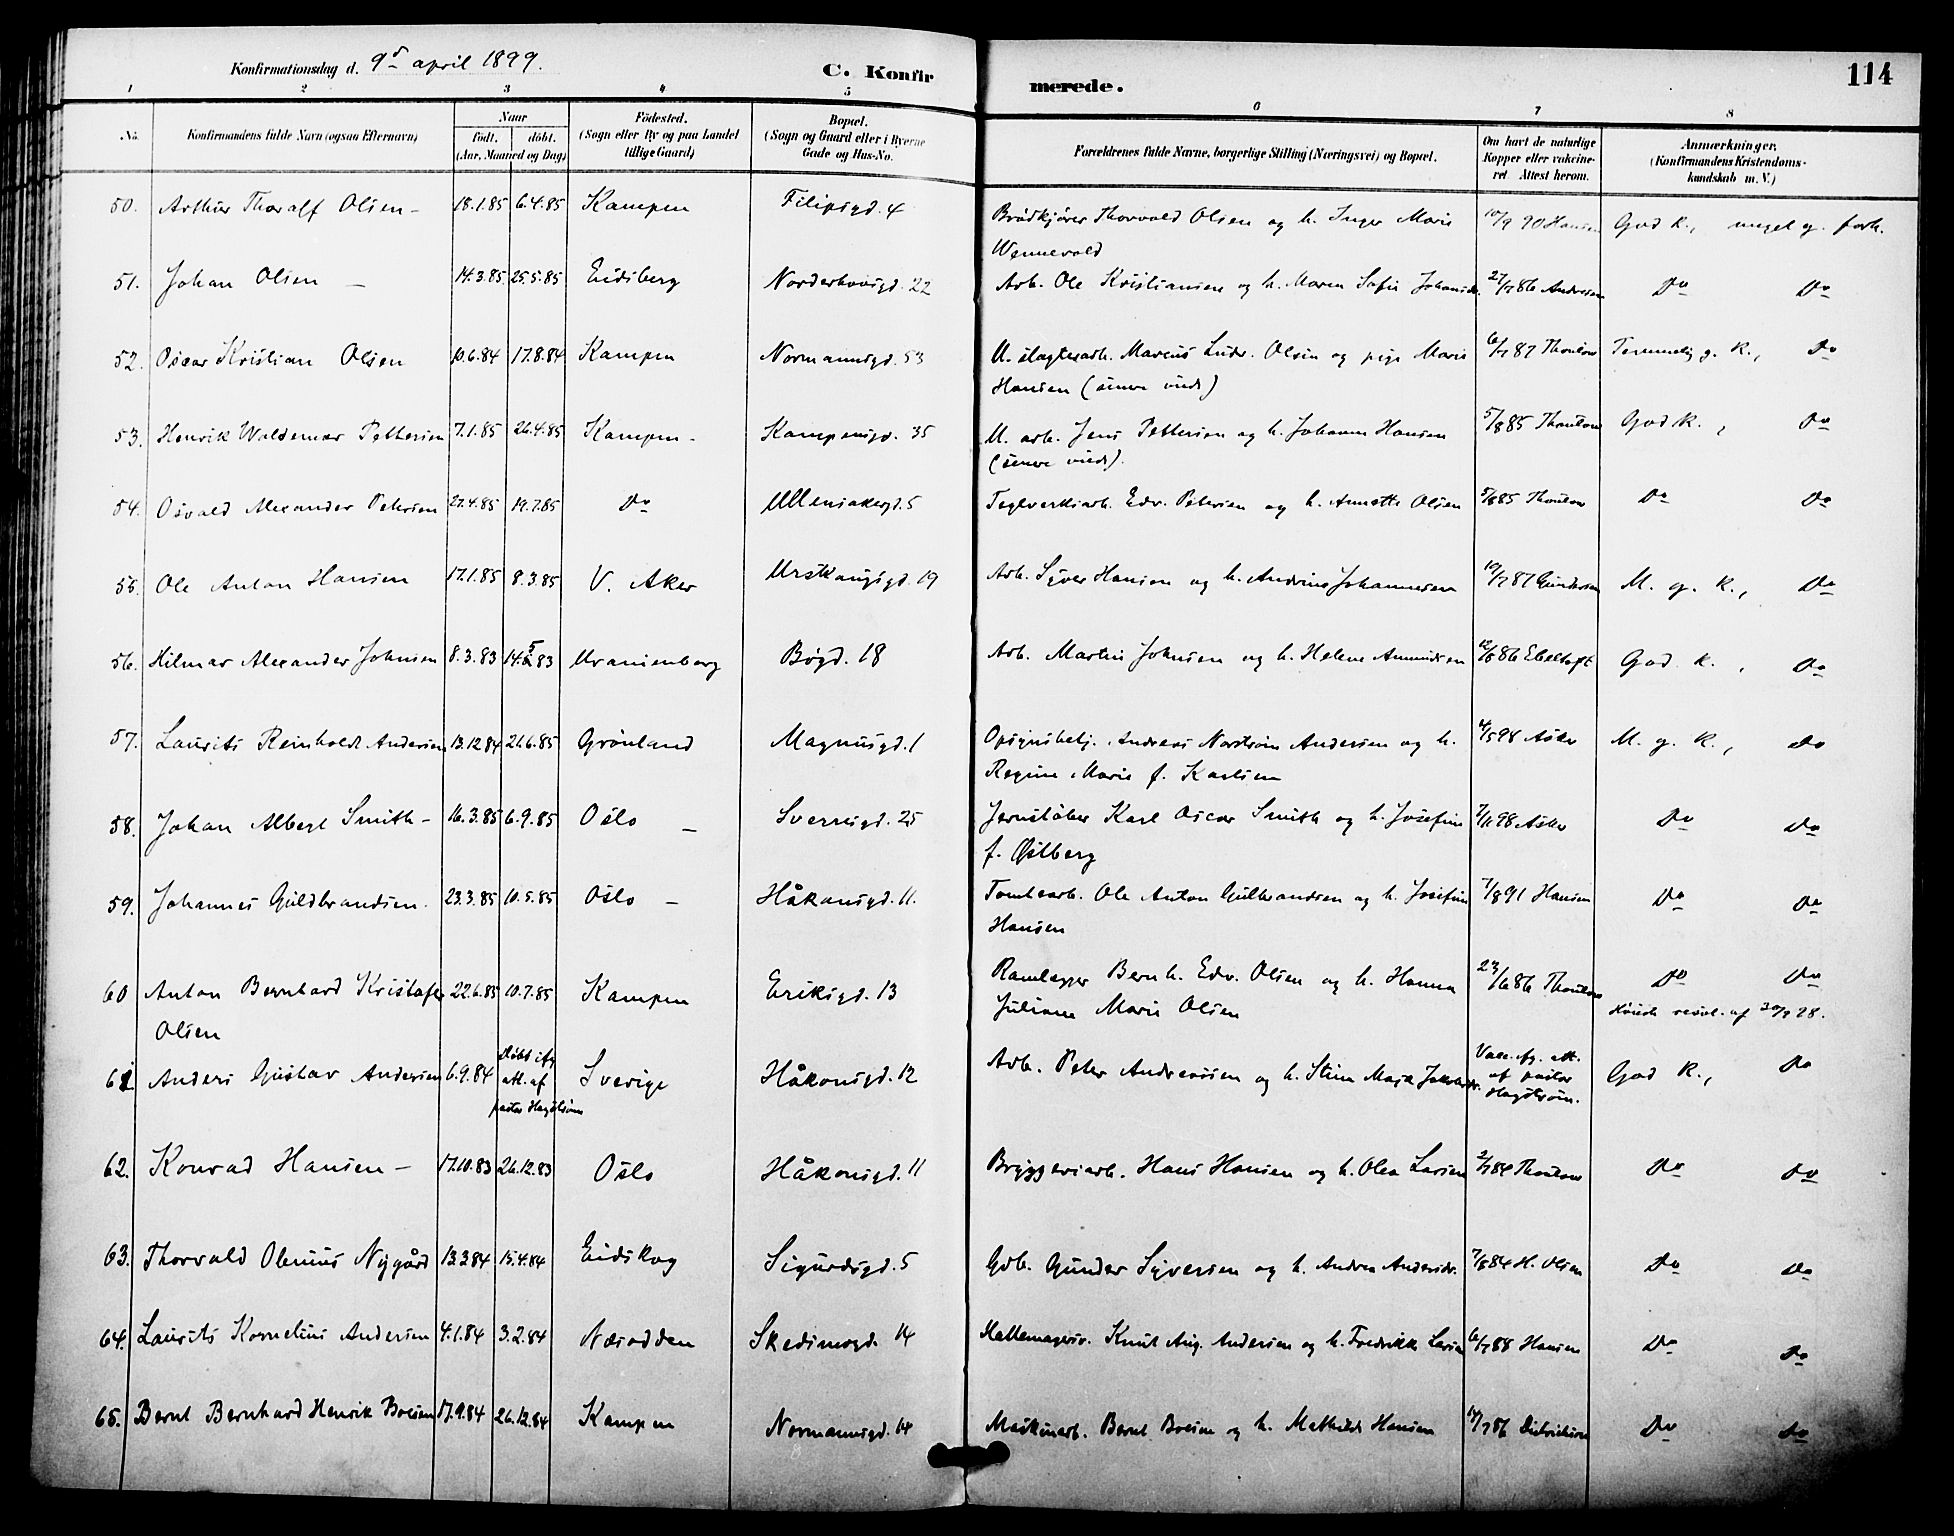 Konfirmationsdag d. 9de april 1899.
C. Konfir
merede.
114
1 2 3 4 5 6 7 8
No. Konfirmandens fulde Navn (ogsaa Efternavn) Naar født. døbt. (Aar, Maaned og Dag) Fødested. (Sogn eller By og paa Landet tillige Gaard) Bopæl. (Sogn og Gaard eller i Byerne Gade og Hus-No. Forældrenes fulde Navne, borgerlige Stilling (Næringsvei) og Bopæl. Om havt de naturlige Kopper eller vakcineret. Attest herom. Anmærkninger. (Konfirmandens Kristendomskundskab m. V.)
50. Arthur Thoralf Olsen – 18.1.85 6.4.85 Kampen Filipsgd. 4 Brødkjører Thorvald Olsen og h. Inger Marie 10/9 90 Hansen God k., meget g. forh.
Wennevold
51. Johan Olsen – 14.3.85 25.5.85 Eidsberg Norderhovsgd. 22 Arb. Ole Kristiansen og h. Maren Sofie Johansdr. 27/7 86 Andresen Do Do
52. Oscar Kristian Olsen 10.6.84 17.8.84 Kampen Normannsgd. 53 U. slagterarb. Marcus Ludv. Olsen og pige Marie 6/7 87 Thoulow Temmelig g. k., Do
Hansen (senere viede)
53. Henrik Waldemar Pettersen 7.1.85 26.4.85 Kampen – Kampensgd. 35 U. arb. Jens Pettersen og h. Johanne Hansen 5/8 85 Thoulow God k., Do
(senere viede).
54. Osvald Alexander Petersen 27.4.85 19.7.85 Do Ullensakergd. 5 Teglverksarb. Edv. Petersen og h. Annette Olsen 5/8 85 Thoulow Do Do
55. Ole Anton Hansen 17.1.85 8.3.85 V. Aker Urskougsgd. 19 Arb. Syver Hansen og h. Andrine Johannesen 19/7 87 Gundersen M. g. k., Do
56. Hilmar Alexander Johnsen 8.3.83 14.5.83 Uranienborg Bøgd. 18 Arb. Martin Johnsen og h. Helene Amundsen 12/8 86 Ebeltoft God k., Do
57. Laurits Reinholdt Andersen 13.12.84 21.6.85 Grønland Magnusgd. 1 Opsynsbetj. Andreas Norstrøm Andersen og h. 4/5 98 Asker M. g. k., do
Regine Marie f. Karlsen
58. Johan Albert Smith – 16.3.85 6.9.85 Oslo – Sverresgd. 25 Jernstøber Karl Oscar Smith og h. Josefine 98 Asker Do Do
f. Østberg
59. Johannes Guldbrandsen. 23.3.85 10.5.85 Oslo – Håkonsgd. 11. Tomtearb. Ole Anton Gulbrandsen og h. Josefine 7/8 91 Hansen Do Do
Hansen
60 Anton Bernhard Kristofer 22.6.85 10.7.85 Kampen Eriksgd. 13 Bernh. Edv. Olsen og h. Hanna 23/6 86 Thoulow Do Do
Olsen Juliane Marie Olsen resol. af 20/9 28.
61. Anders Gustav Andersen 6.9.84 Døbt ifg. att. af pastor Hagstrøm Sverige Håkonsgd. 12 Arb. Peter Andreassen og h. Stina Maja Vacc. ifg. att. af pastor Hagstrøm. God k., Do
62. Konrad Hansen – 17.10.83 26.12.83 Oslo Håkonsgd. 11 Bryggeriarb. Hans Hansen og h. Olea Larsen 2/7 84 Thoulow Do Do
63. Thorvald Olenius Nygård 13.3.84 15.4.84 Eidskog Sigurdsgd. 5 Gdb. Gunder Syversen og h. Andrea Andersdr. 7/8 84 H. Olsen Do Do
64. Laurits Kornelius Andersen 4.1.84 3.2.84 Næsodden Skedsmogd. 14 Hattemagersv. Knut Aug. Andersen og h. Fredrikke Larsen 6/7 88 Hansen Do Do
65. Bernt Bernhard Henrik Boesen 17.9.84 26.12.84 Kampen Normannsgd. 14 Maskinarb. Bernt Boesen og h. Mathilde Hansen 14/7 86 Didrichsen Do Do